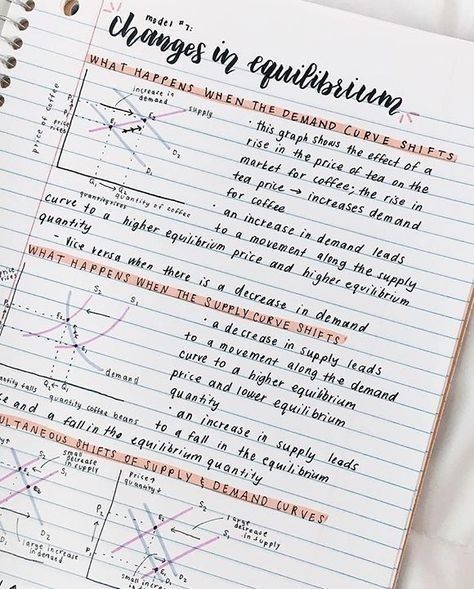 model #7:
changes in equilibrium
WHAT HAPPENS WHEN THE DEMAND CURVE SHIFTS
increase in
demand
supply
price of coffee
P₂
price
rises
P₁
E₂
E₁
D₂
D₁
Q₁ → Q₂
quantity rises
quantity of coffee
• this graph shows the effect of a
rise in the price of tea on the
market for coffee; the rise in
tea price → increases demand
for coffee
• an increase in demand leads
to a movement along the supply
curve to a higher equilibrium price and higher equilibrium
quantity
- vice versa when there is a decrease in demand
WHAT HAPPENS WHEN THE SUPPLY CURVE SHIFTS
S₂
S₁
E₂
E₁
demand
Q₂ ← Q₁
quantity falls
quantity coffee beans
• a decrease in supply leads
to a movement along the demand
curve to a higher equilibrium
price and lower equilibrium
quantity
• an increase in supply leads
to a fall in the equilibrium
and a fall in the equilibrium quantity
SHIFTS OF SUPPLY & DEMAND CURVES
small
decrease
in supply
S₂
S₁
E₂
large increase
in demand
price↑
quantity↓
P₂
S₂
S₁
E₂
E₁
large
decrease
in supply
D₂
D₁
small increase
in demand